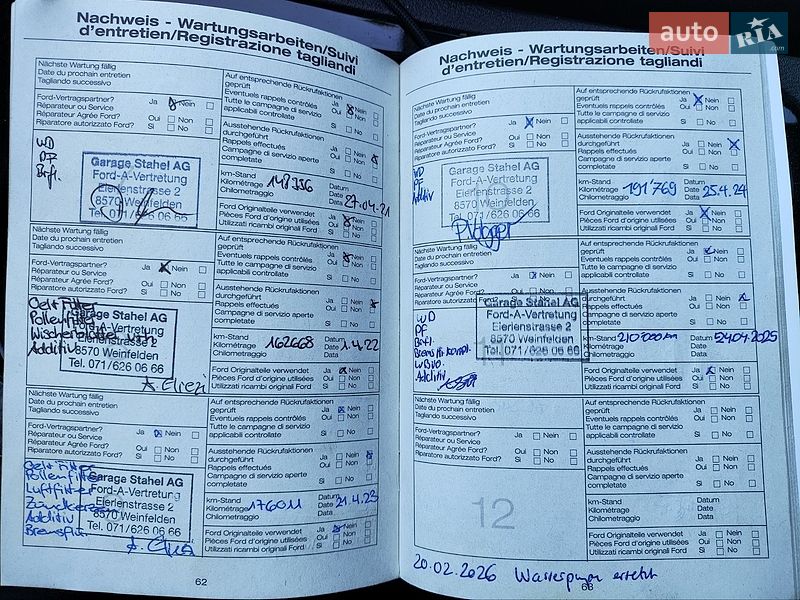 Nachweis - Wartungsarbeiten/Suivi
d'entretien/Registrazione tagliandi
Nächste Wartung fällig
Date du prochain entretien
Tagliando successivo
Ford-Vertragspartner? Ja Nein
Réparateur ou Service
Réparateur Agrée Ford? Oui Non
Riparatore autorizzato Ford? Si No
WD
PF
Brfl.
Garage Stahel AG
Ford-A-Vertretung
Eierlenstrasse 2
8570 Weinfelden
Tel. 071/626 06 66
Auf entsprechende Rückrufaktionen
geprüft Ja Nein
Eventuels rappels contrôlés Oui Non
Tutte le campagne di servizio
applicabili controllate Si No
Ausstehende Rückrufaktionen
durchgeführt Ja Nein
Rappels effectués Oui Non
Campagne di servizio aperte
completate Si No
km-Stand 148936 Datum
Kilométrage Date 27.04.21
Chilometraggio Data
Ford Originalteile verwendet Ja Nein
Pièces Ford d'origine utilisées Oui Non
Utilizzati ricambi original Ford Si No
Nächste Wartung fällig
Date du prochain entretien
Tagliando successivo
Ford-Vertragspartner? Ja Nein
Réparateur ou Service
Réparateur Agrée Ford? Oui Non
Riparatore autorizzato Ford? Si No
Oel + Filter
Pollenfilter
Wischerblätter
Additiv
Garage Stahel AG
Ford-A-Vertretung
Eierlenstrasse 2
8570 Weinfelden
Tel. 071/626 06 66
Auf entsprechende Rückrufaktionen
geprüft Ja Nein
Eventuels rappels contrôlés Oui Non
Tutte le campagne di servizio
applicabili controllate Si No
Ausstehende Rückrufaktionen
durchgeführt Ja Nein
Rappels effectués Oui Non
Campagne di servizio aperte
completate Si No
km-Stand 162668 Datum
Kilométrage Date 1.4.22
Chilometraggio Data
Ford Originalteile verwendet Ja Nein
Pièces Ford d'origine utilisées Oui Non
Utilizzati ricambi original Ford Si No
Nächste Wartung fällig
Date du prochain entretien
Tagliando successivo
Ford-Vertragspartner? Ja Nein
Réparateur ou Service
Réparateur Agrée Ford? Oui Non
Riparatore autorizzato Ford? Si No
Oel + Filter
Pollenfilter
Luftfilter
Zündkerzen
Additiv
Bremsflü
Garage Stahel AG
Ford-A-Vertretung
Eierlenstrasse 2
8570 Weinfelden
Tel. 071/626 06 66
Auf entsprechende Rückrufaktionen
geprüft Ja Nein
Eventuels rappels contrôlés Oui Non
Tutte le campagne di servizio
applicabili controllate Si No
Ausstehende Rückrufaktionen
durchgeführt Ja Nein
Rappels effectués Oui Non
Campagne di servizio aperte
completate Si No
km-Stand 176011 Datum
Kilométrage Date 21.4.23
Chilometraggio Data
Ford Originalteile verwendet Ja Nein
Pièces Ford d'origine utilisées Oui Non
Utilizzati ricambi original Ford Si No
62
Nachweis - Wartungsarbeiten/Suivi
d'entretien/Registrazione tagliandi
Nächste Wartung fällig
Date du prochain entretien
Tagliando successivo
Ford-Vertragspartner? Ja Nein
Réparateur ou Service
Réparateur Agrée Ford? Oui Non
Riparatore autorizzato Ford? Si No
WD
PF
Additiv
Garage Stahel AG
Ford-A-Vertretung
Eierlenstrasse 2
8570 Weinfelden
Tel. 071/626 06 66
Auf entsprechende Rückrufaktionen
geprüft Ja Nein
Eventuels rappels contrôlés Oui Non
Tutte le campagne di servizio
applicabili controllate Si No
Ausstehende Rückrufaktionen
durchgeführt Ja Nein
Rappels effectués Oui Non
Campagne di servizio aperte
completate Si No
km-Stand 191769 Datum
Kilométrage Date 25.4.24
Chilometraggio Data
Ford Originalteile verwendet Ja Nein
Pièces Ford d'origine utilisées Oui Non
Utilizzati ricambi original Ford Si No
Nächste Wartung fällig
Date du prochain entretien
Tagliando successivo
Ford-Vertragspartner? Ja Nein
Réparateur ou Service
Réparateur Agrée Ford? Oui Non
Riparatore autorizzato Ford? Si No
WD
PF
Brfl.
Brems kompl.
Additiv
Garage Stahel AG
Ford-A-Vertretung
Eierlenstrasse 2
8570 Weinfelden
Tel. 071/626 06 66
11
Auf entsprechende Rückrufaktionen
geprüft Ja Nein
Eventuels rappels contrôlés Oui Non
Tutte le campagne di servizio
applicabili controllate Si No
Ausstehende Rückrufaktionen
durchgeführt Ja Nein
Rappels effectués Oui Non
Campagne di servizio aperte
completate Si No
km-Stand 210'000 km Datum 24.04.2025
Kilométrage Date
Chilometraggio Data
Ford Originalteile verwendet Ja Nein
Pièces Ford d'origine utilisées Oui Non
Utilizzati ricambi original Ford Si No
Nächste Wartung fällig
Date du prochain entretien
Tagliando successivo
Ford-Vertragspartner? Ja Nein
Réparateur ou Service
Réparateur Agrée Ford? Oui Non
Riparatore autorizzato Ford? Si No
12
Auf entsprechende Rückrufaktionen
geprüft Ja Nein
Eventuels rappels contrôlés Oui Non
Tutte le campagne di servizio
applicabili controllate Si No
Ausstehende Rückrufaktionen
durchgeführt Ja Nein
Rappels effectués Oui Non
Campagne di servizio aperte
completate Si No
km-Stand Datum
Kilométrage Date
Chilometraggio Data
Ford Originalteile verwendet Ja Nein
Pièces Ford d'origine utilisées Oui Non
Utilizzati ricambi original Ford Si No
20.02.2026 Wasserpumpe
63
auto RIA
.com